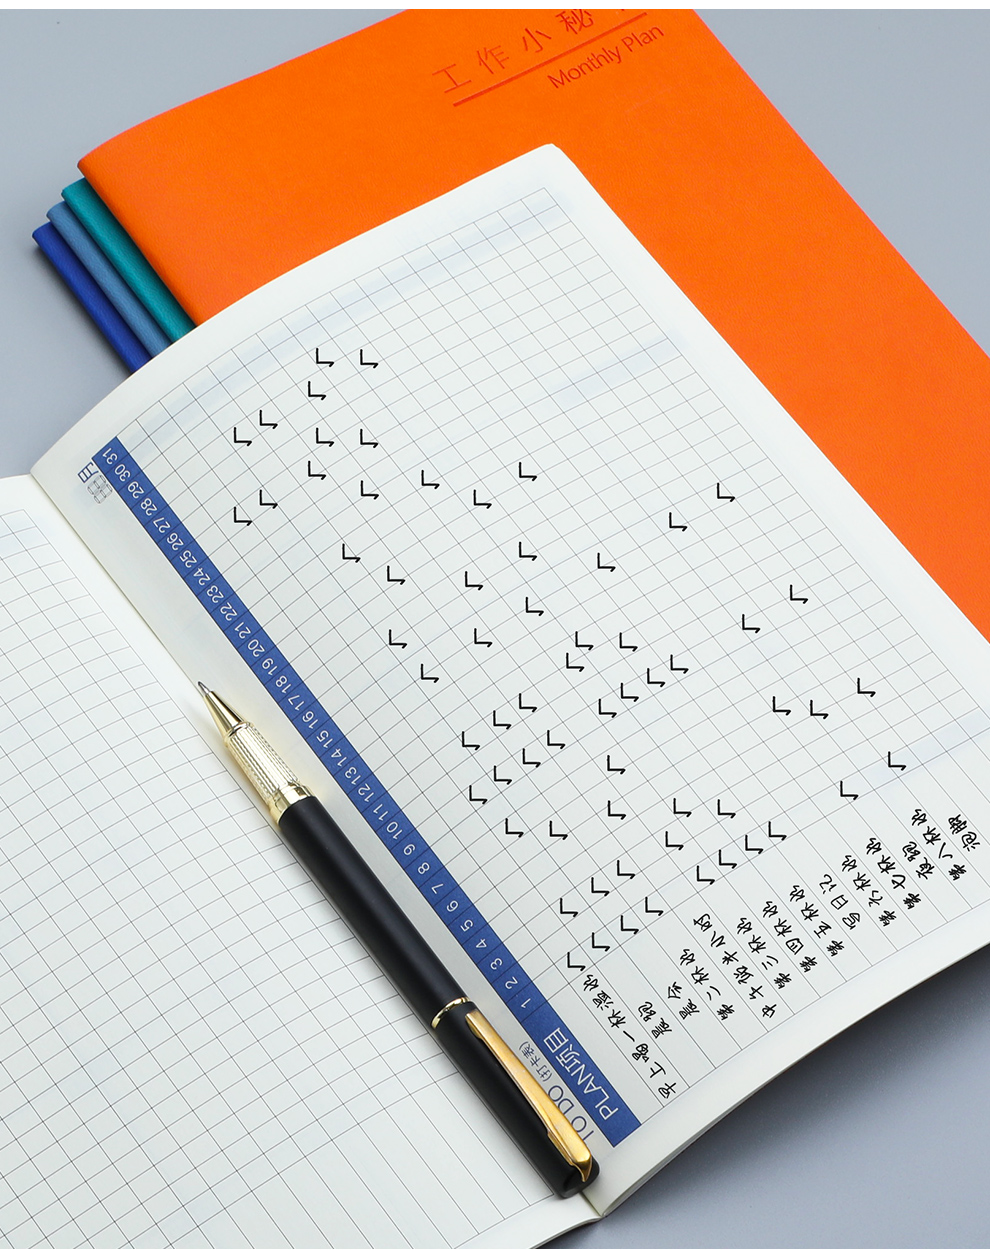 工作小秘
Monthly Plan
月
TO DO (打卡表)
PLAN项目 1 2 3 4 5 6 7 8 9 10 11 12 13 14 15 16 17 18 19 20 21 22 23 24 25 26 27 28 29 30 31
早上喝一杯温水
晨跑
晨会
第二杯水
中午站半小时
第三杯水
第四杯水
第五杯水
写日记
第六杯水
第七杯水
夜跑
第八杯水
泡脚